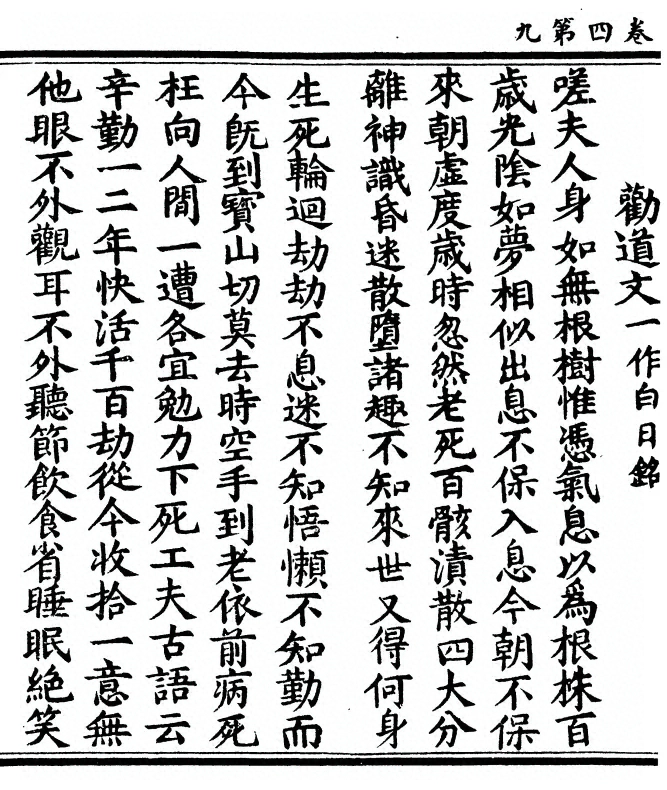 卷四第九
勸道文一作白日銘
嗟夫人身如無根樹惟憑氣息以爲根株百
歲光陰如夢相似出息不保入息今朝不保
來朝虛度歲時忽然老死百骸潰散四大分
離神識昏迷散墮諸趣不知來世又得何身
生死輪迴劫劫不息迷不知悟懶不知勤而
今旣到寶山切莫去時空手到老依前病死
枉向人間一遭各宜勉力下死工夫古語云
辛勤一二年快活千百劫從今收拾一意無
他眼不外觀耳不外聽節飲食省睡眠絶笑